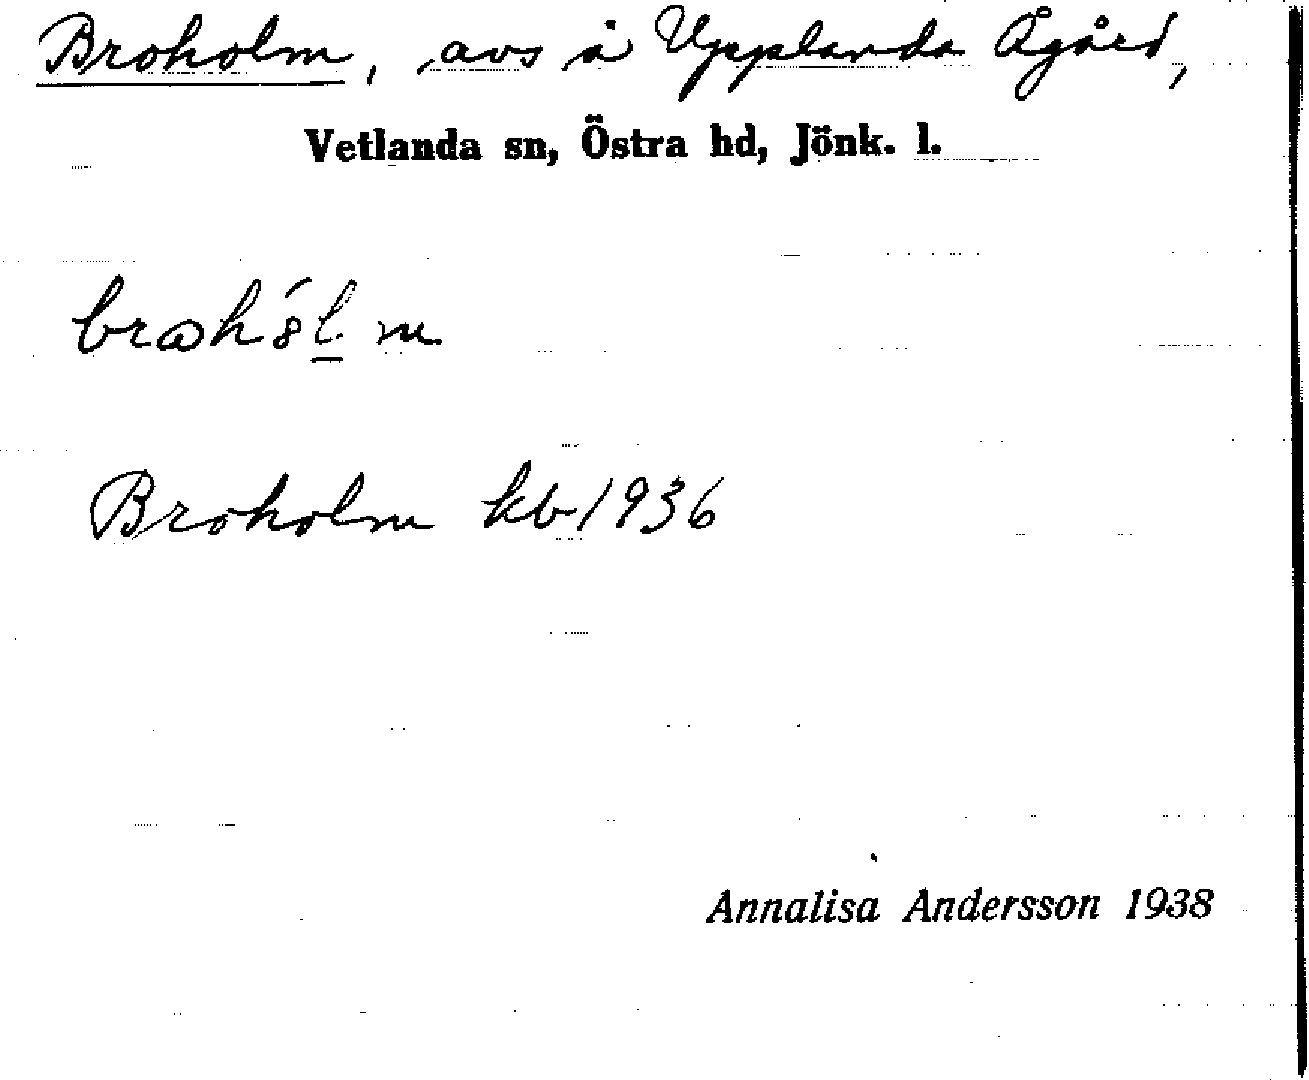 Broholm, avs å Upplanda Ågård,
Vetlanda sn, Östra hd, Jönk. l.
Broholm kb 1936
Annalisa Andersson 1938